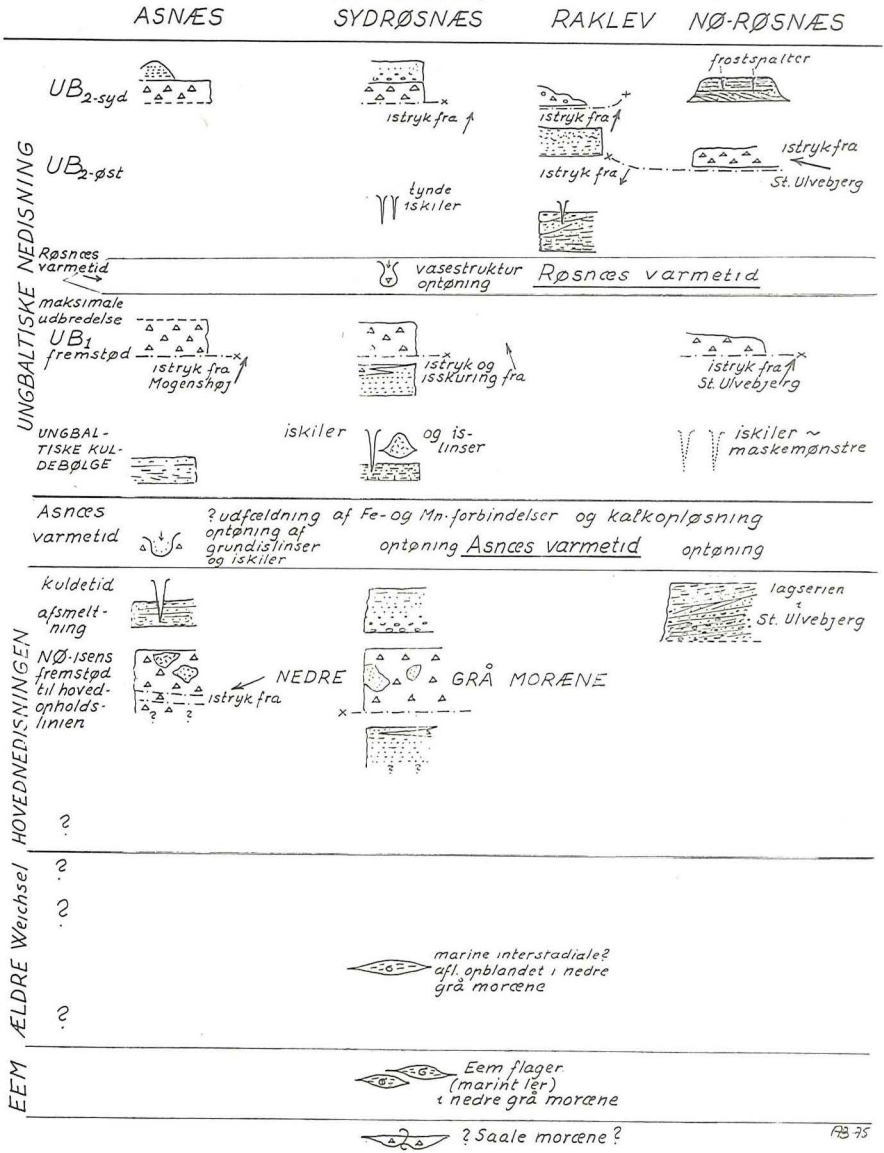 ASNÆS SYDRØSNÆS RAKLEV NØ-RØSNÆS
UNGBALTISKE NEDISNING
UB2-syd
istryk fra
istryk fra
frostspalter
UB2-øst
tynde
iskiler
istryk fra
istryk fra
St. Ulvebjerg
Røsnæs
varmetid
vasestruktur
optøning
Røsnæs varmetid
maksimale
udbredelse
UB1
fremstød
istryk fra
Mogenshøj
istryk og
isskuring fra
istryk fra
St. Ulvebjerg
UNGBAL-
TISKE KUL-
DEBØLGE
iskiler
og is-
linser
iskiler ~
maskemønstre
Asnæs
varmetid
? udfældning af Fe- og Mn-forbindelser og kalkopløsning
optøning af
grundislinser
og iskiler
optøning Asnæs varmetid optøning
HOVEDNEDISNINGEN
kuldetid
afsmelt-
ning
lagserien
i
St. Ulvebjerg
NØ-isens
fremstød
til hoved-
opholds-
linien
? ?
istryk fra
NEDRE GRÅ MORÆNE
? ?
?
ÆLDRE Weichsel
?
?
marine interstadiale?
afl. opblandet i nedre
grå moræne
?
EEM
Eem flager
(marint ler)
i nedre grå moræne
? Saale moræne ?
AB-75